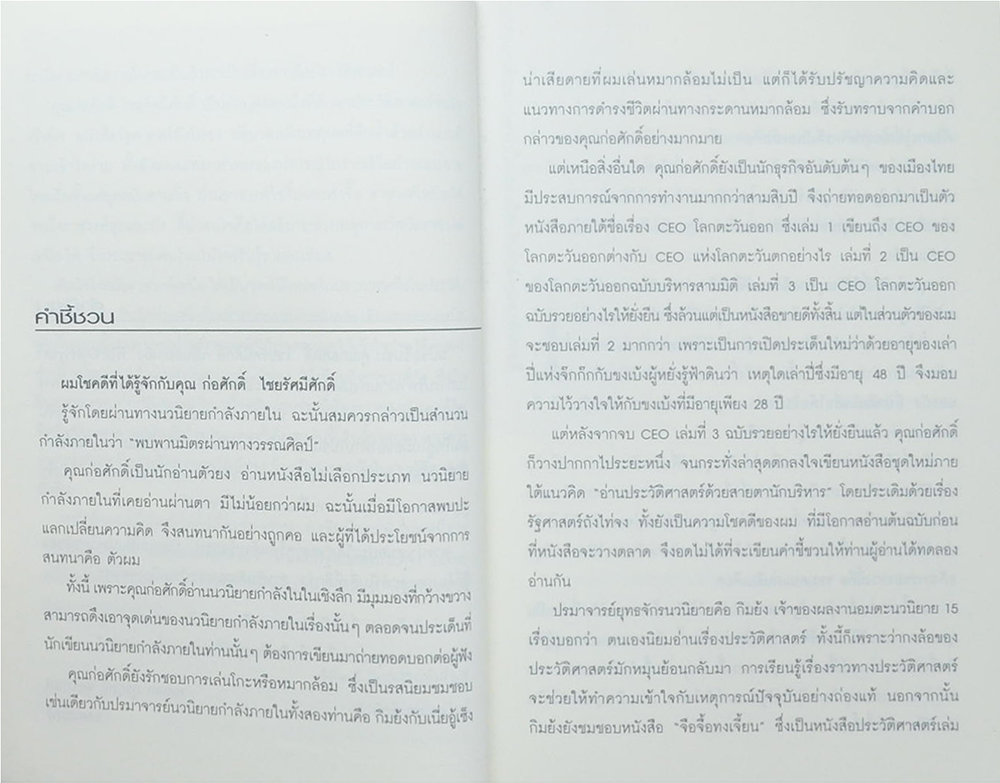 คำชี้ชวน
ผมโชคดีที่ได้รู้จักกับคุณ ก่อศักดิ์ ไชยรัศมีศักดิ์
รู้จักโดยผ่านทางนวนิยายกำลังภายใน ฉะนั้นสมควรกล่าวเป็นสำนวน
กำลังภายในว่า “พบพานมิตรผ่านทางวรรณศิลป์”
คุณก่อศักดิ์เป็นนักอ่านตัวยง อ่านหนังสือไม่เลือกประเภท นวนิยาย
กำลังภายในที่เคยอ่านผ่านตา มีไม่น้อยกว่าผม ฉะนั้นเมื่อมีโอกาสพบปะ
แลกเปลี่ยนความคิด จึงสนทนากันอย่างถูกคอ และผู้ที่ได้ประโยชน์จากการ
สนทนาคือ ตัวผม
ทั้งนี้ เพราะคุณก่อศักดิ์อ่านนวนิยายกำลังในในเชิงลึก มีมุมมองที่กว้างขวาง
สามารถดึงเอาจุดเด่นของนวนิยายกำลังภายในเรื่องนั้นๆ ตลอดจนประเด็นที่
นักเขียนนวนิยายกำลังภายในท่านนั้นๆ ต้องการเขียนมาถ่ายทอดบอกต่อผู้ฟัง
คุณก่อศักดิ์ยังรักชอบการเล่นโกะหรือหมากล้อม ซึ่งเป็นรสนิยมชมชอบ
เช่นเดียวกับปรมาจารย์นวนิยายกำลังภายในทั้งสองท่านคือ กิมย้งกับเนี่ยอู้เซ็ง
น่าเสียดายที่ผมเล่นหมากล้อมไม่เป็น แต่ก็ได้รับปรัชญาความคิดและ
แนวทางการดำรงชีวิตผ่านทางกระดานหมากล้อม ซึ่งรับทราบจากคำบอก
กล่าวของคุณก่อศักดิ์อย่างมากมาย
แต่เหนือสิ่งอื่นใด คุณก่อศักดิ์ยังเป็นนักธุรกิจอันดับต้นๆ ของเมืองไทย
มีประสบการณ์จากการทำงานมากกว่าสามสิบปี จึงถ่ายทอดออกมาเป็นตัว
หนังสือภายใต้ชื่อเรื่อง CEO โลกตะวันออก ซึ่งเล่ม 1 เขียนถึง CEO ของ
โลกตะวันออกต่างกับ CEO แห่งโลกตะวันตกอย่างไร เล่มที่ 2 เป็น CEO
ของโลกตะวันออกฉบับบริหารสามมิติ เล่มที่ 3 เป็น CEO โลกตะวันออก
ฉบับรวยอย่างไรให้ยั่งยืน ซึ่งล้วนแต่เป็นหนังสือขายดีทั้งสิ้น แต่ในส่วนตัวของผม
จะชอบเล่มที่ 2 มากกว่า เพราะเป็นการเปิดประเด็นใหม่ว่าด้วยอายุของเล่า
ปี่แห่งจ๊กก๊กกับขงเบ้งผู้หยั่งรู้ฟ้าดินว่า เหตุใดเล่าปี่ซึ่งมีอายุ 48 ปี จึงมอบ
ความไว้วางใจให้กับขงเบ้งที่มีอายุเพียง 28 ปี
แต่หลังจากจบ CEO เล่มที่ 3 ฉบับรวยอย่างไรให้ยั่งยืนแล้ว คุณก่อศักดิ์
ก็วางปากกาไประยะหนึ่ง จนกระทั่งล่าสุดตกลงใจเขียนหนังสือชุดใหม่ภาย
ใต้แนวคิด “อ่านประวัติศาสตร์ด้วยสายตานักบริหาร” โดยประเดิมด้วยเรื่อง
รัฐศาสตร์ถังไท่จง ทั้งยังเป็นความโชคดีของผม ที่มีโอกาสอ่านต้นฉบับก่อน
ที่หนังสือจะวางตลาด จึงอดไม่ได้ที่จะเขียนคำชี้ชวนให้ท่านผู้อ่านได้ทดลอง
อ่านกัน
ปรมาจารย์ยุทธจักรนวนิยายคือ กิมย้ง เจ้าของผลงานอมตะนวนิยาย 15
เรื่องบอกว่า ตนเองนิยมอ่านเรื่องประวัติศาสตร์ ทั้งนี้ก็เพราะว่ากงล้อของ
ประวัติศาสตร์มักหมุนย้อนกลับมา การเรียนรู้เรื่องราวทางประวัติศาสตร์
จะช่วยให้ทำความเข้าใจกับเหตุการณ์ปัจจุบันอย่างถ่องแท้ นอกจากนั้น
กิมย้งยังชมชอบหนังสือ “จือจื้อทงเจี้ยน” ซึ่งเป็นหนังสือประวัติศาสตร์เล่ม